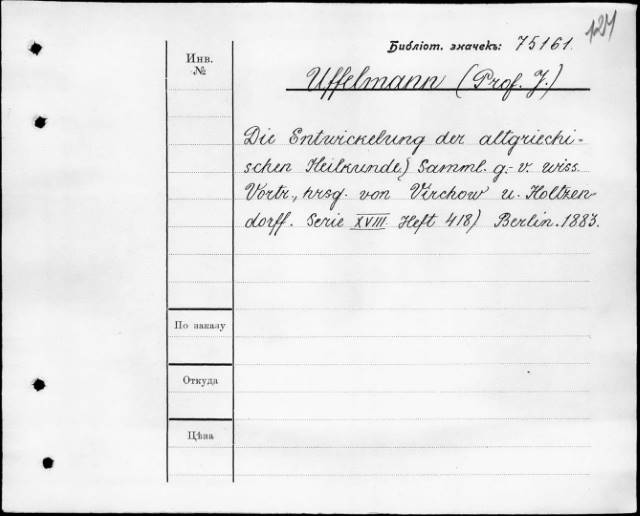 127
Библіот. значекъ: 75161.
Инв.
№
Uffelmann (Prof. J.)
Die Entwickelung der altgriechi-
schen Heilkunde) Samml. g.-v. wiss.
Vortr., hrsg. von Virchow u. Holtzen-
dorff. Serie XVIII. Heft 418) Berlin. 1883.
По заказу
Откуда
Цѣна